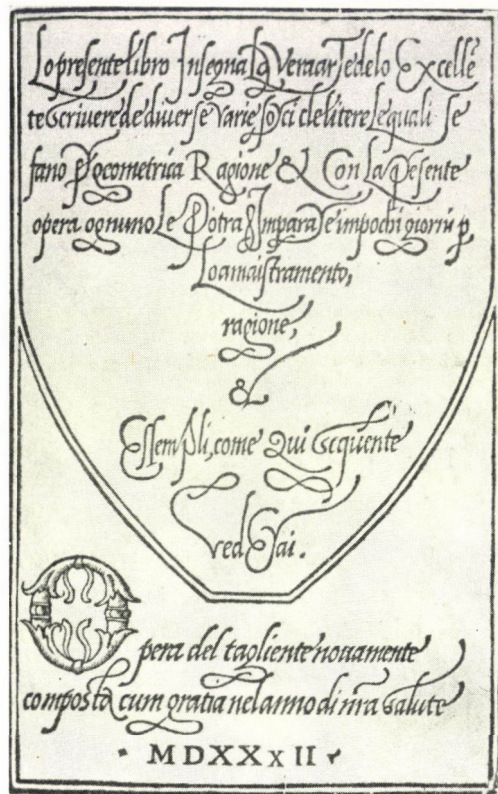 Lo presente libro Insegna La Vera arte delo Excellẽ
te scriuere de diuerse varie sorti de litere le quali se
fano p geometrica Ragione & Con la Pesente
opera ognuno le Potra Imparare impochi giorni p
Lo amaistramento,
ragione,
&
Essempli, come Qui sequente
vedrai.
Opera del tagliente nouamente
composta cum gratia nel anno di nr̃a salute
MDXXxII